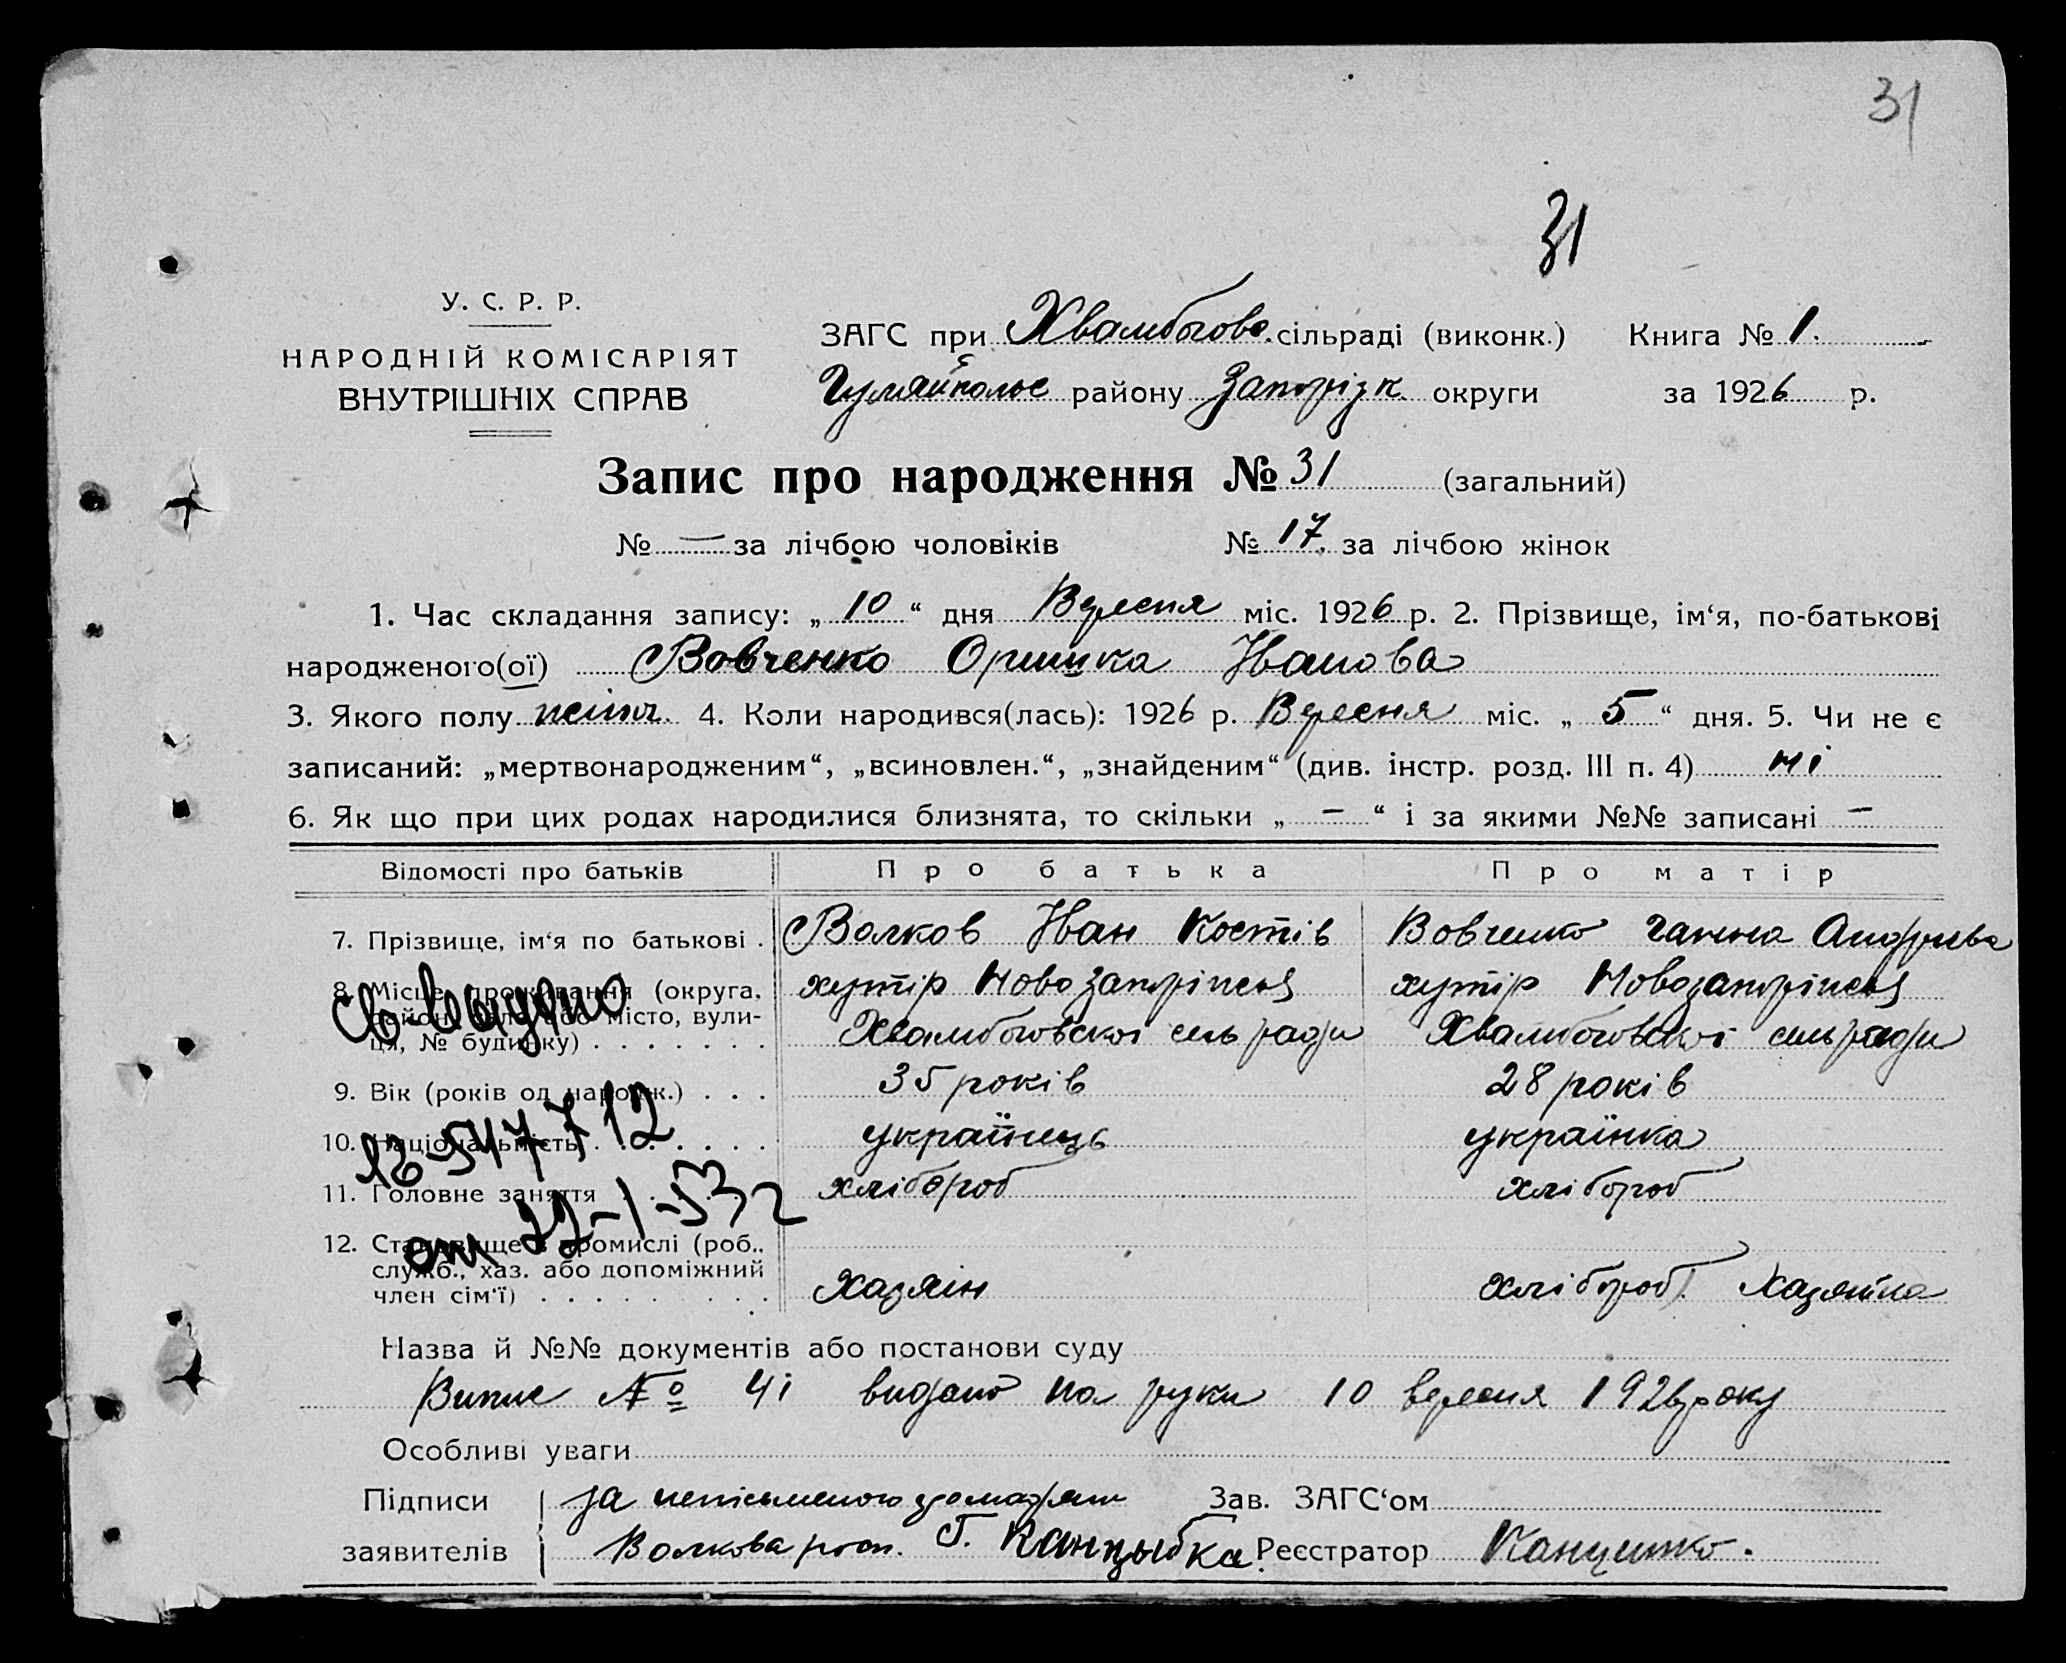 31
31
У. С. Р. Р.
НАРОДНІЙ КОМІСАРІЯТ
ВНУТРІШНІХ СПРАВ
ЗАГС при Хвалибогов. сільраді (виконк.) Книга № 1.
Гуляйпольс району Запоріжк. округи за 1926 р.
Запис про народження № 31 (загальний)
№ — за лічбою чоловіків № 17. за лічбою жінок
1. Час складання запису: „ 10 “ дня Вересня міс. 1926 р. 2. Прізвище, ім‘я, по-батькові
народженого(ої) Вовченко Оришка Іванова
3. Якого полу жіноч. 4. Коли народився(лась): 1926 р. Вересня міс. „ 5 “ дня. 5. Чи не є
записаний: „мертвонародженим“, „всиновлен.“, „знайденим“ (див. інстр. розд. III п. 4) ні
6. Як що при цих родах народилися близнята, то скільки „ — “ і за якими №№ записані —
Відомості про батьків Про батька Про матір
7. Прізвище, ім‘я по батькові . Волков Іван Костів Вовченко Ганна Андріева
8. Місце проживання (округа, хутір Новозапоріжся хутір Новозапоріжся
район, село або місто, вули-
ця, № будинку) . . . . . . . Хвалибоговскої сельради Хвалибоговскої сельради
Св-во выдано
9. Вік (років од народж.) . . . 35 років 28 років
10. Національність . . . . . . українець українка
11. Головне заняття хлібороб хлібороб
от 22-1-53 г
12. Становище в промислі (роб.,
служб., хаз. або допоміжний
член сім‘ї) . . . . . . . . . хазяїн хлібороб. Хазяйка
Назва й №№ документів або постанови суду
Випис № 41 видано на руки 10 вересня 1926 року
Особливі уваги
Підписи за неписьменого громадян Зав. ЗАГС‘ом
заявителів Волкова росп. Реєстратор